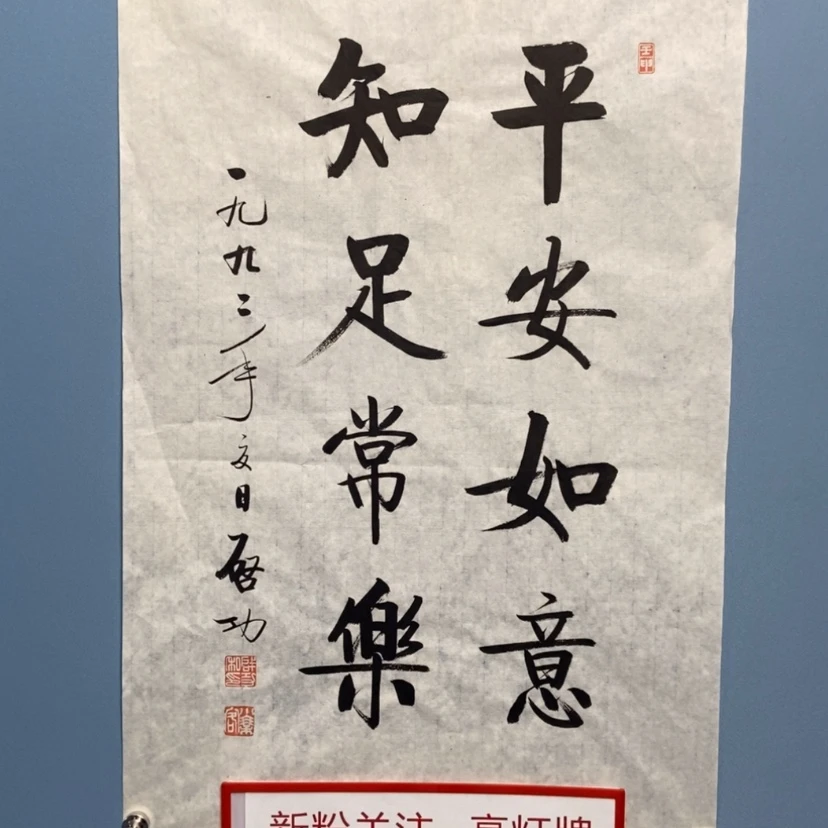 平安如意
知足常樂
一九九二年夏日 啓功
新粉关注 亮灯牌